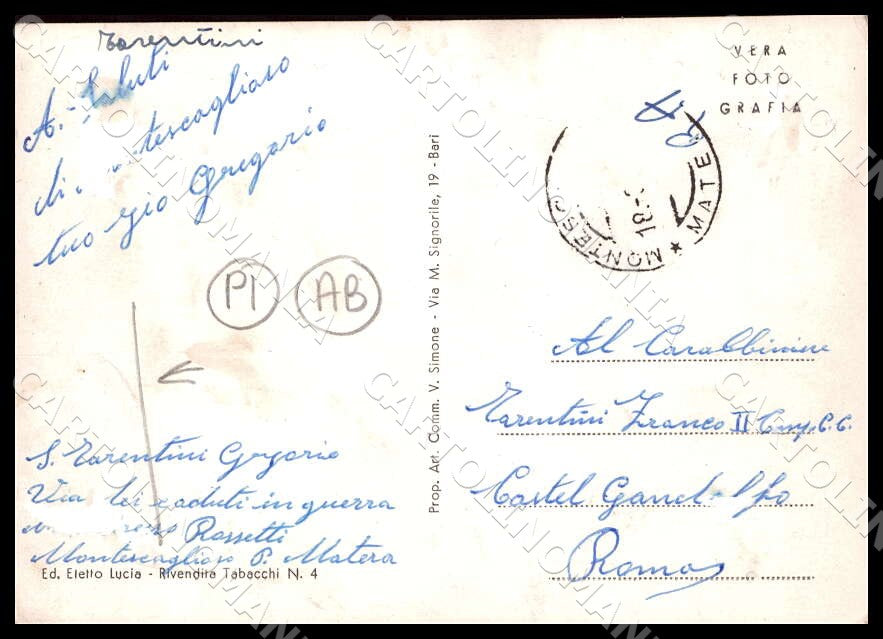 Tarentini
A. Saluti
di Montescaglioso
tuo zio Gregorio
PI
AB
S. Tarentini Gregorio
Via dei caduti in guerra
Rossetti
Montescaglioso P. Matera
Ed. Eletto Lucia - Rivendita Tabacchi N. 4
Prop. Art. Comm. V. Simone - Via M. Signorile, 19 - Bari
VERA
FOTO
GRAFIA
MONTESC
★ MATE
18-
Al Carabbiniere
Tarentini Franco II Cmp. C. C.
Castel Gandolfo
Roma
CARTOLINOMANIA